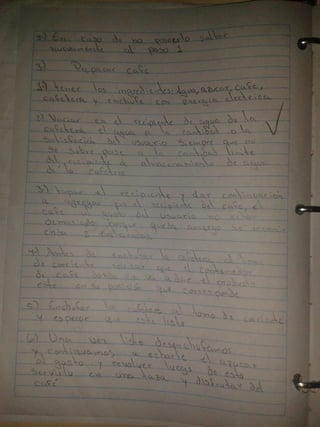 2) En caso de no poseerlo saltar
nuevamente al paso 1
3) Preparar cafe
1) tener los ingredientes: Agua, azucar, cafe,
cafetera y enchufe con energia electrica
2) Vaciar en el recipiente de agua de la
cafetera el agua a la cantidad o la
satisfacción del usuario siempre que no
se sobre pase a la cantidad limite
del recipiente de almacenamiento de agua
de la cafetera
3) tapar el recipiente y dar continuación
a agregar por el recipiente del cafe, el
cafe al gusto del usuario no
demasiado porque queda amargo se
4) Antes de enchufar la cafetera al toma
de corriente revisar que el contenedor
de cafe donde se va a el producto
este en su posición que corresponde
5) Enchufar la cafetera al toma de corriente
y esperar que este listo
6) Una vez listo desenchufamos
y continuamos a echarle el azucar
al gusto y revolver luego de esto
servirlo en una taza y disfrutar del
café